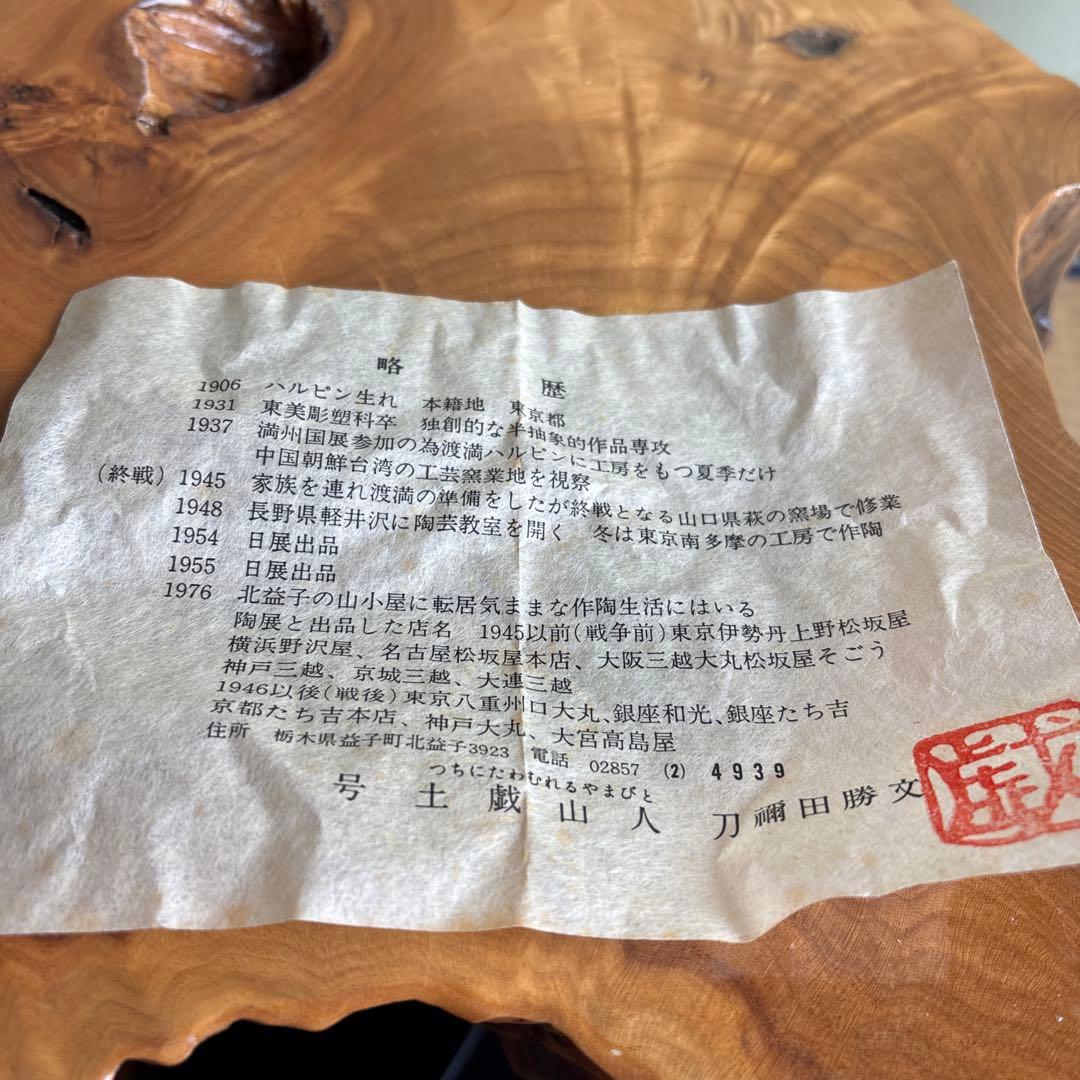 略歴
1906 ハルピン生れ 本籍地 東京都
1931 東美彫塑科卒 独創的な半抽象的作品専攻
1937 満州国展参加の為渡満ハルピンに工房をもつ夏季だけ
中国朝鮮台湾の工芸窯業地を視察
(終戦) 1945 家族を連れ渡満の準備をしたが終戦となる山口県萩の窯場で修業
1948 長野県軽井沢に陶芸教室を開く 冬は東京南多摩の工房で作陶
1954 日展出品
1955 日展出品
1976 北益子の山小屋に転居気ままな作陶生活にはいる
陶展と出品した店名 1945以前(戦争前)東京伊勢丹上野松坂屋
横浜野沢屋、名古屋松坂屋本店、大阪三越大丸松坂屋そごう
神戸三越、京城三越、大連三越
1946以後(戦後)東京八重州口大丸、銀座和光、銀座たち吉
京都たち吉本店、神戸大丸、大宮高島屋
住所 栃木県益子町北益子3923 電話 02857 (2) 4939
つちにたわむれるやまびと
号 土戯山人 刀禰田勝文